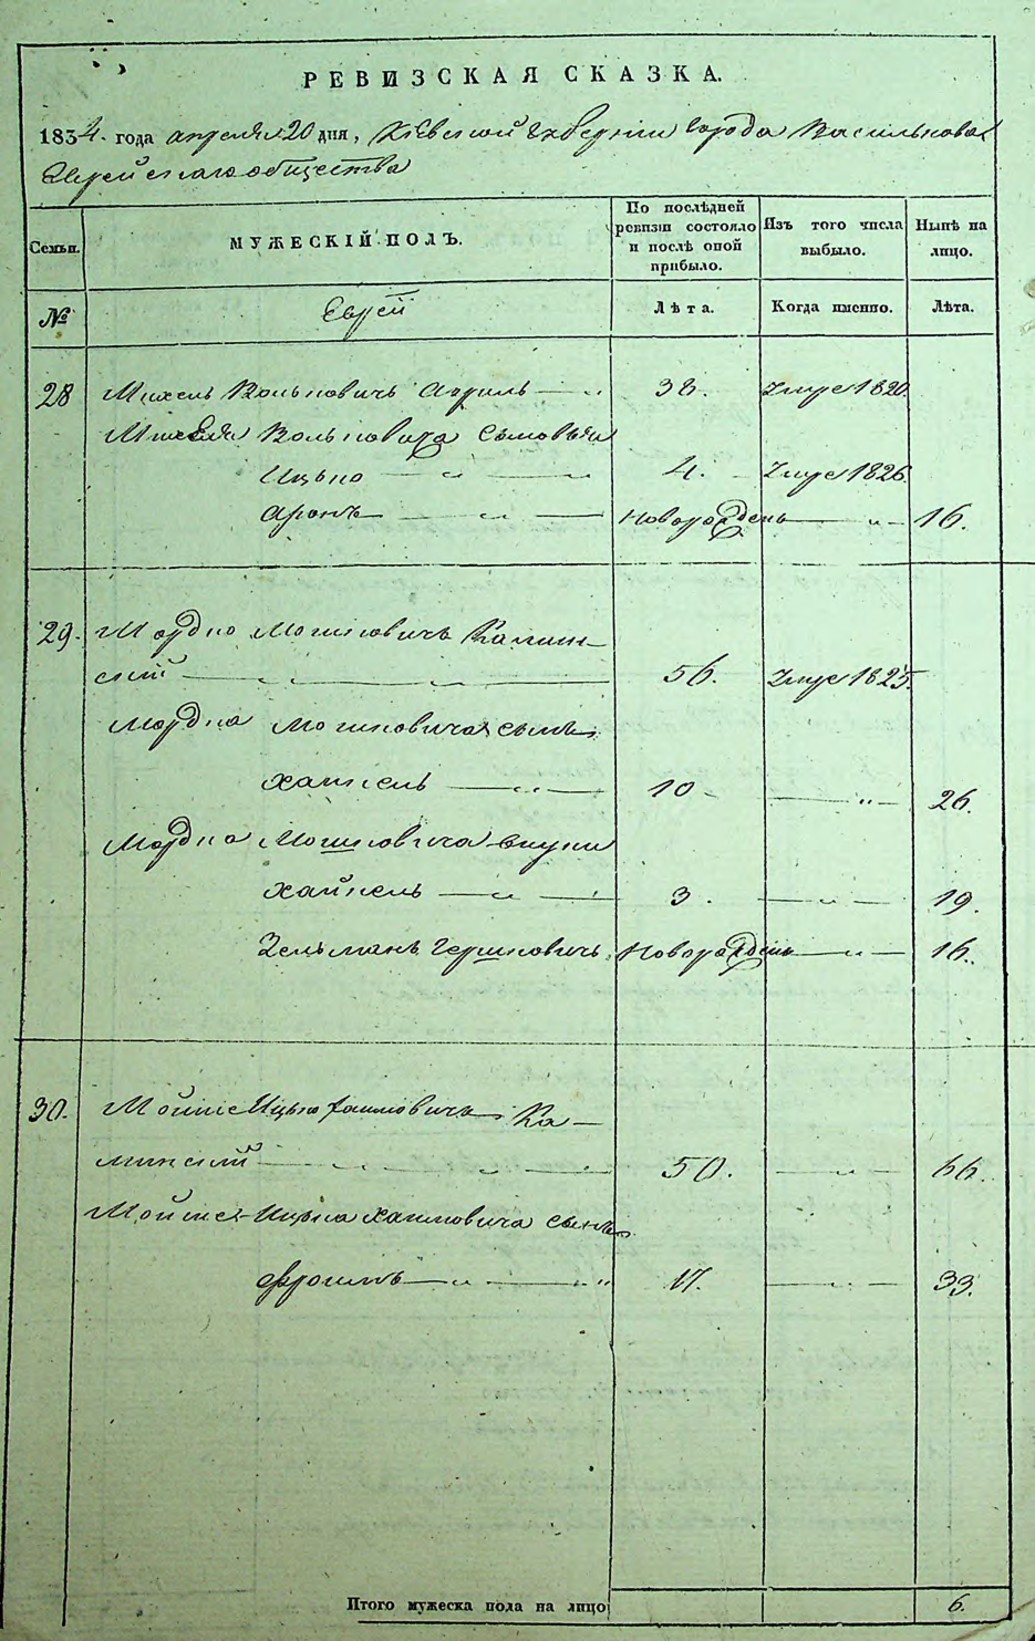 РЕВИЗСКАЯ СКАЗКА.
1834. года апреля 20 дня, Киевской Губернии города Василькова
Еврейскаго общества
Семьи. МУЖЕСКІЙ ПОЛЪ. По послѣдней ревизіи состояло и послѣ оной прибыло. Изъ того числа выбыло. Нынѣ на лицо.
№ Еврей Лѣта. Когда именно. Лѣта.
28 Михель Вольковичъ 38. Умре 1820.
Михеля Вольковича сыновья
Ицько 4. Умре 1826.
Аронъ Новорожденъ 16.
29. Мордко Мошковичъ Камин-
скій 56. Умре 1825.
Мордка Мошковича сынъ
Хаскель 10 26.
Мордка Мошковича внуки
Хайкель 3. 19.
Зельманъ Гершковичъ Новорожденъ 16.
30. Мойше Ицько Хаимовичъ Ка-
минскій 50. 66.
Мойше-Ицька Хаимовича сынъ
Фроимъ 17. 33.
Итого мужеска пола на лицо 6.